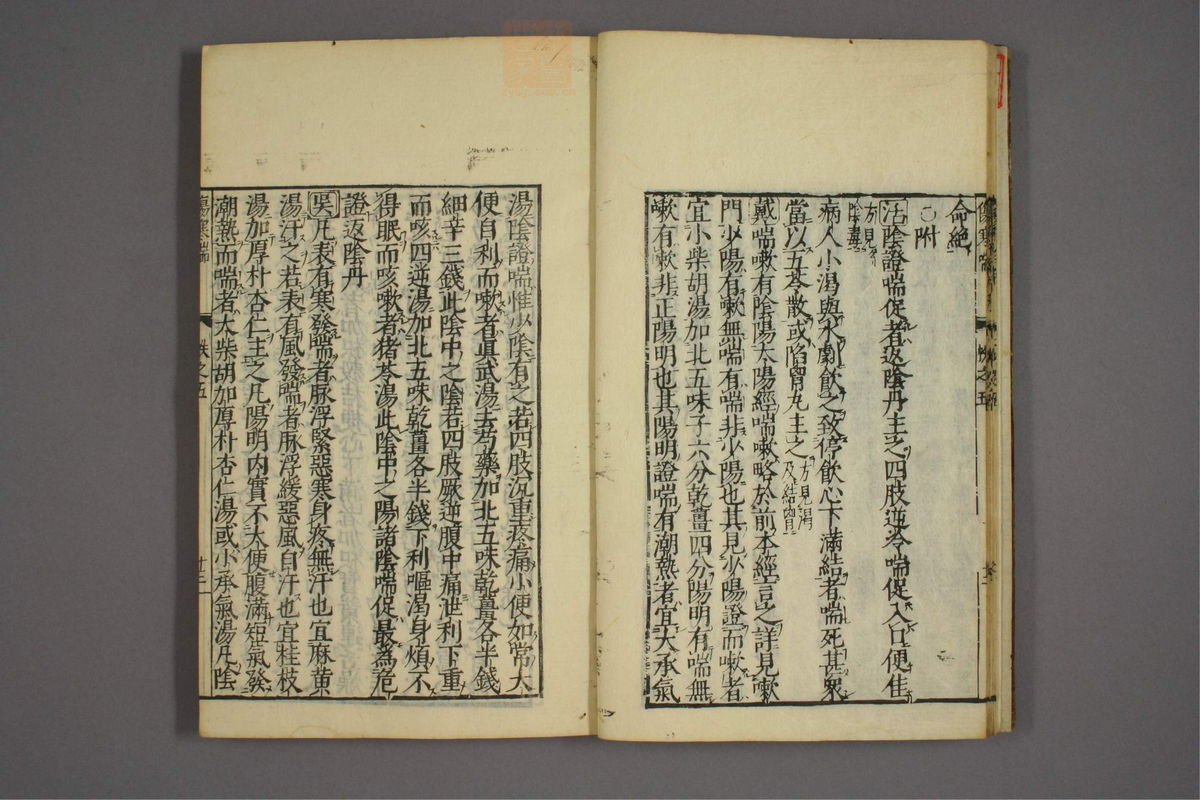 命絶
○附
活陰證喘促者返陰丹主之四肢逆冷喘促入口便住
方見
陰毒
病人小渴與水劇飲之致停飲心下滿結者喘死甚衆
當以五苓散或陷胷丸主之方見渴
及結胷
戴喘嗽有陰陽太陽經喘嗽略於前本經言之詳見嗽
門少陽有嗽無喘有喘非少陽也其見少陽證而嗽者
宜小柴胡湯加北五味子六分乾薑四分陽明有喘無
嗽有嗽非正陽明也其陽明證喘有潮熱者宜大承氣
湯陰證喘惟少陰有之若四肢沉重疼痛小便如常大
便自利而嗽者眞武湯去芍藥加北五味乾薑各半錢
細辛三錢此陰中之陰若四肢厥逆腹中痛泄利下重
而咳四逆湯加北五味乾薑各半錢下利嘔渴身煩不
得眠而咳嗽者猪苓湯此陰中之陽諸陰喘促最為危
證返陰丹
吳凡表有寒發喘者脉浮緊惡寒身疼無汗也宜麻黄
湯汗之若表有風發喘者脉浮緩惡風自汗也宜桂枝
湯加厚朴杏仁主之凡陽明内實不大便腹滿短氣發
潮熱而喘者大柴胡加厚朴杏仁湯或小承氣湯凡陰
傷寒喘
帙之五
十二